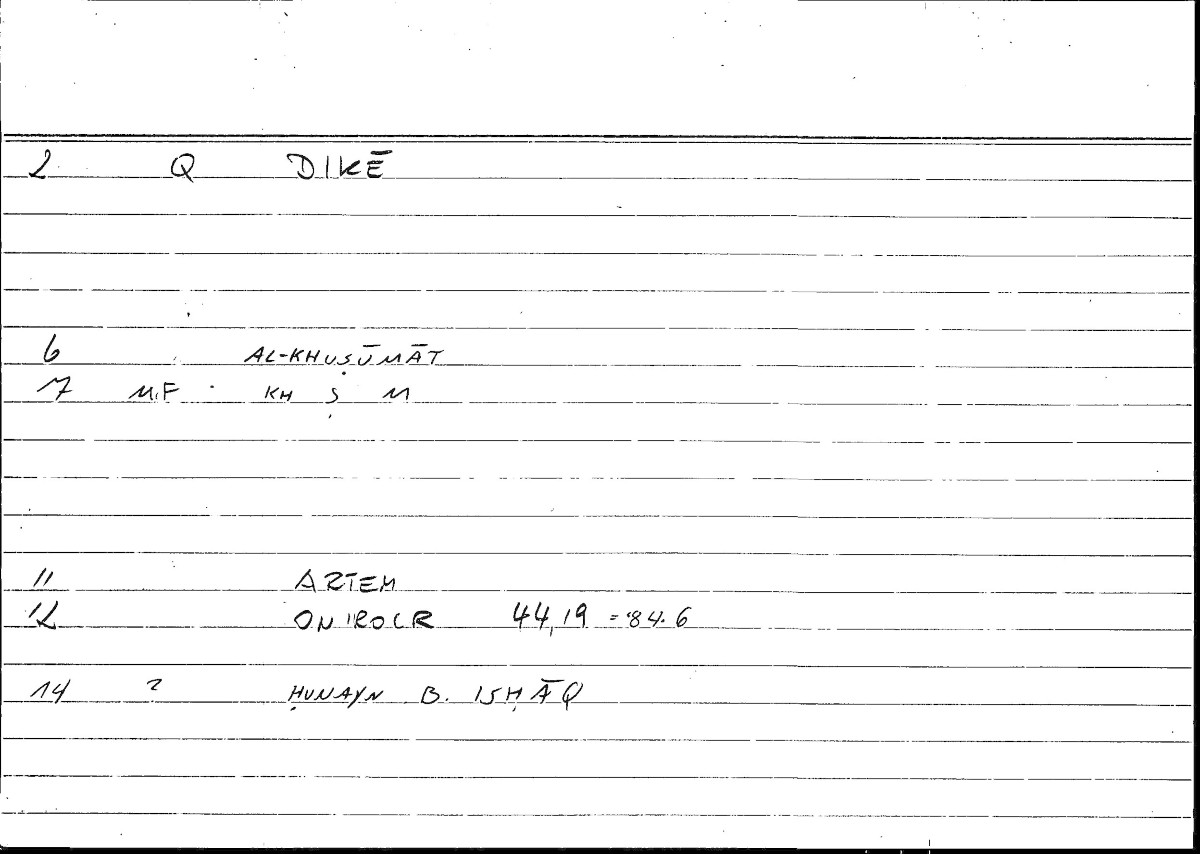 2 Q DIKĒ
6 AL-KHUṢŪMĀT
7 M.F KH Ṣ M
11 ARTEM
12 ONIROCR 44,19 = 84.6
14 ? ḤUNAYN B. ISḤĀQ